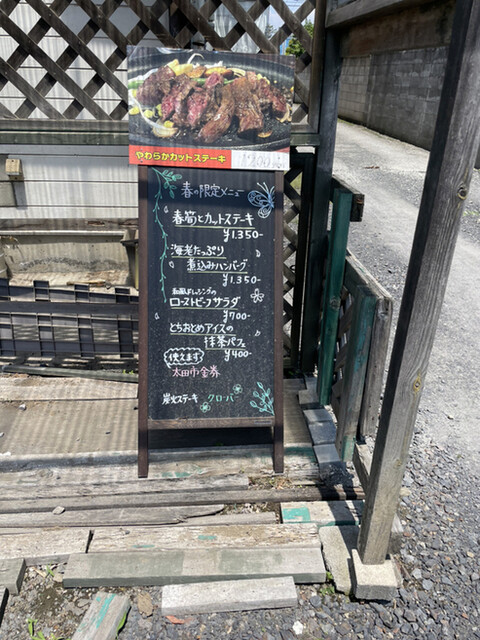 やわらかカットステーキ
春の限定メニュー
春筍とカットステーキ
¥1.350-
海老たっぷり
煮込みハンバーグ
¥1.350-
和風ドレッシングの
ローストビーフサラダ
¥700-
とちおとめアイスの
抹茶パフェ
¥400-
使えます
太田市金券
炭火ステーキ クローバー